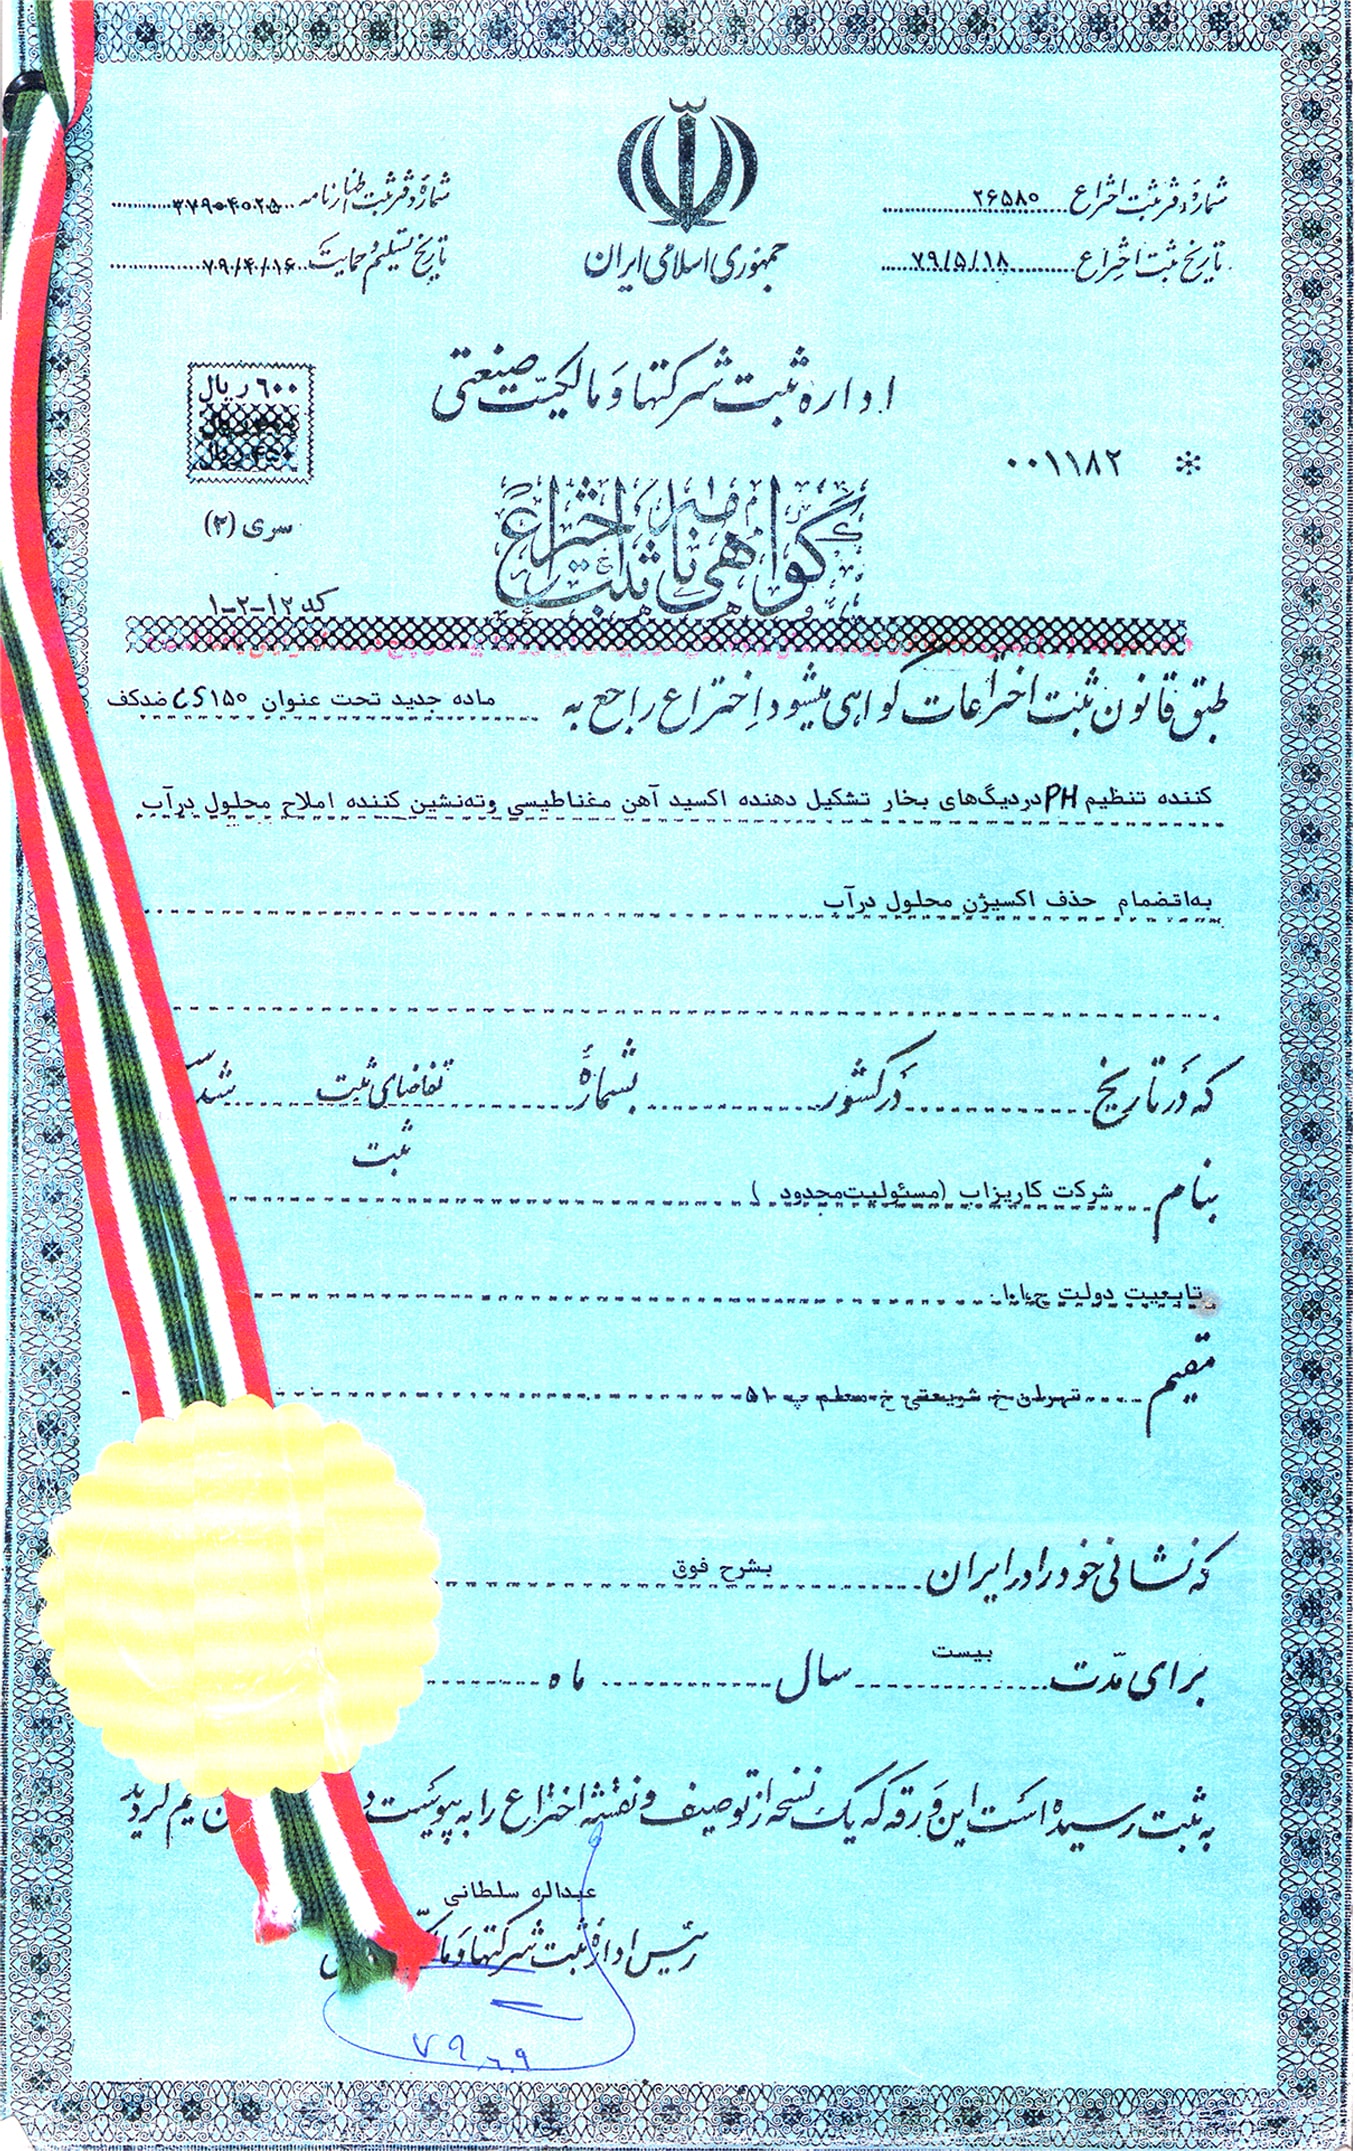 شماره دفتر ثبت اختراع ۲۶۵۸۰
تاریخ ثبت اختراع ۷۹/۵/۱۸
جمهوری اسلامی ایران
شماره دفتر ثبت اظهارنامه ۳۷۹۰۴۰۲۵
تاریخ تسلیم و حمایت ۷۹/۴/۱۶
اداره ثبت شرکتها و مالکیت صنعتی
۶۰۰ ریال
۰۰۱۱۸۲ *
سری (۲)
گواهی نامه ثبت اختراع
کد ۱۲-۲-۱
طبق قانون ثبت اختراعات گواهی میشود اختراع راجع به ماده جدید تحت عنوان CS۱۵۰ ضدکف
کننده تنظیم PH دردیگ‌های بخار تشکیل دهنده اکسید آهن مغناطیسی وته‌نشین کننده املاح محلول درآب
به‌اقضمام حذف اکسیژن محلول درآب
که در تاریخ در کشور بشماره تقاضای ثبت شده
ثبت
بنام شرکت کاریزاب (مسئولیت‌محدود)
تابعیت دولت ج.ا.ا.
مقیم تهران خ شریعتی خ معلم پ ۵۱
که نشانی خود را در ایران بشرح فوق
برای مدت بیست سال ماه
به ثبت رسیده است این ورقه که یک نسخه از توصیف و نقشه اختراع را به پیوست گردید
عبداله سلطانی
رئیس اداره ثبت شرکتها و
۷۹/۶/۹